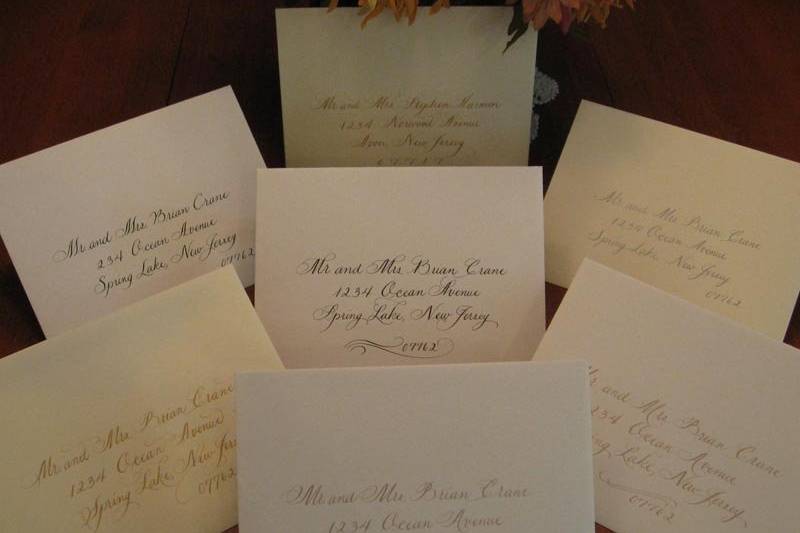 Mr and Mrs Stephen Harmon
1234 Norwood Avenue
Avon, New Jersey
Mr and Mrs Brian Crane
234 Ocean Avenue
Spring Lake, New Jersey
07762
Mr and Mrs Brian Crane
1234 Ocean Avenue
Spring Lake, New Jersey
07762
Mr and Mrs Brian Crane
1234 Ocean Avenue
Spring Lake, New Jersey
07762
Mr and Mrs Brian Crane
1234 Ocean Avenue
Spring Lake, New Jer
07762
Mr and Mrs Brian Crane
1234 Ocean Avenue
Mr and Mrs Brian Crane
1234 Ocean Avenue
Spring Lake, New Jersey
07762